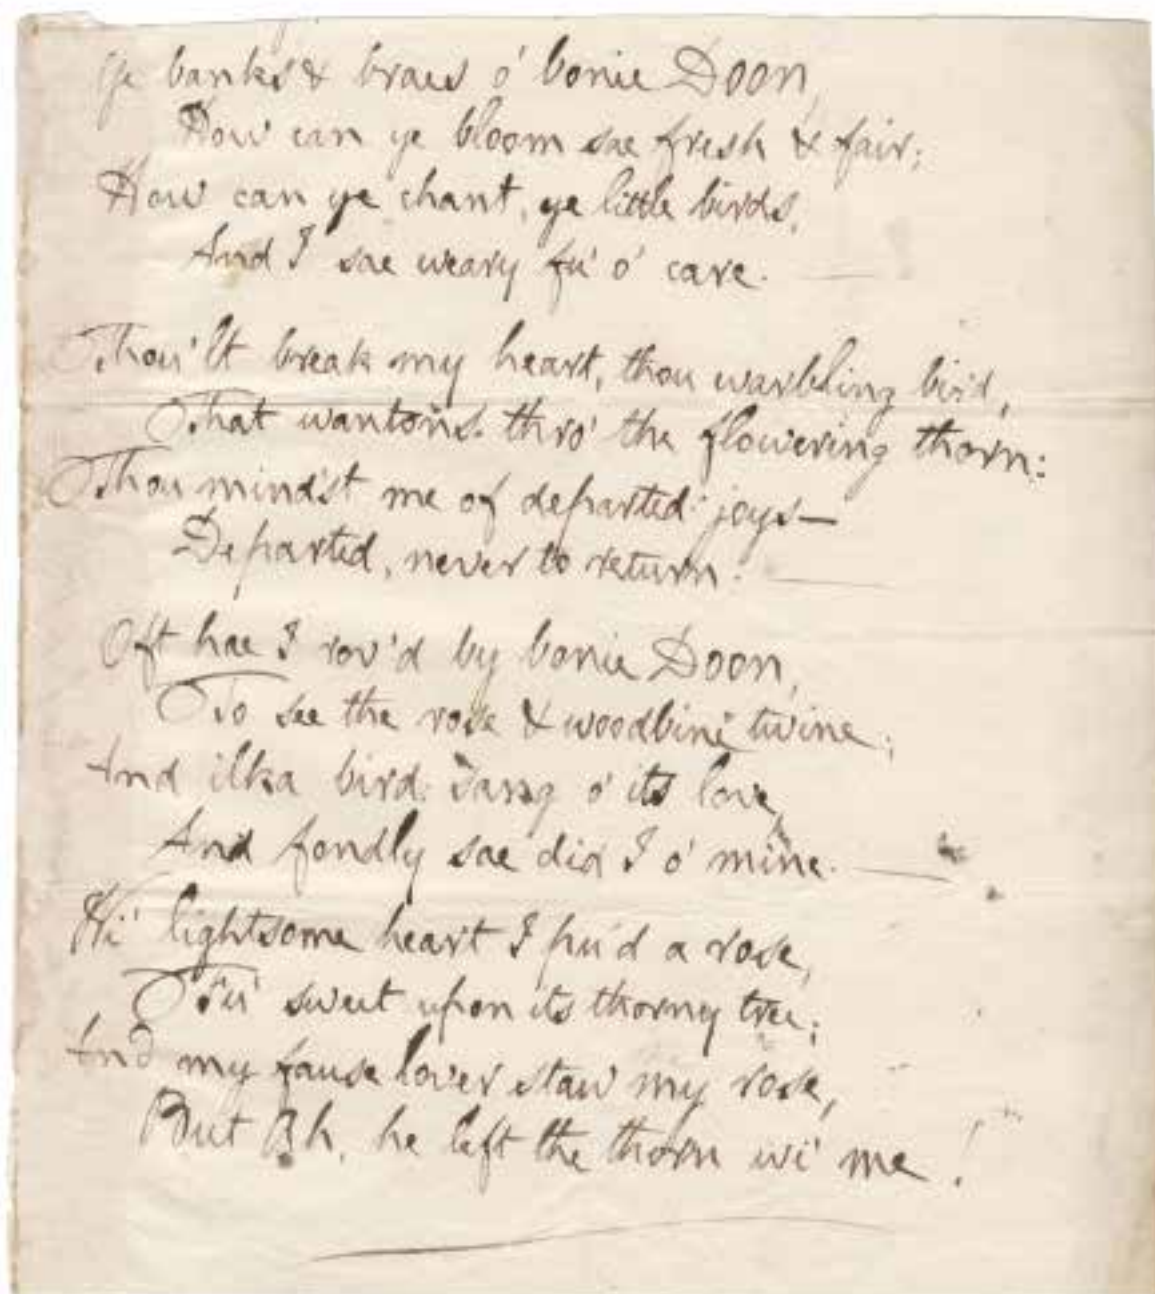 Ye banks & braes o' bonie Doon,
How can ye bloom sae fresh & fair;
How can ye chant, ye little birds,
And I sae weary fu' o' care.
Thou'lt break my heart, thou warbling bird,
That wantons thro' the flowering thorn:
Thou mindst me of departed joys—
Departed, never to return.
Oft hae I rov'd by bonie Doon,
To see the rose & woodbine twine;
And ilka bird sang o' its love,
And fondly sae did I o' mine.
Wi' lightsome heart I pu'd a rose,
Fu' sweet upon its thorny tree;
And my fause lover staw my rose,
But Ah, he left the thorn wi' me!